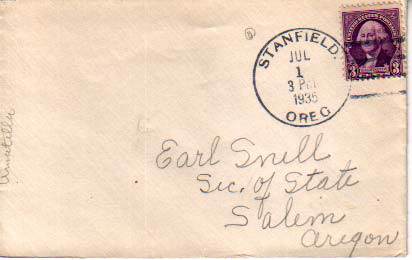 STANFIELD,
JUL
1
3 PM
1935
OREG
3 3
Earl Snell
Sec. of State
Salem
Oregon
Umatilla